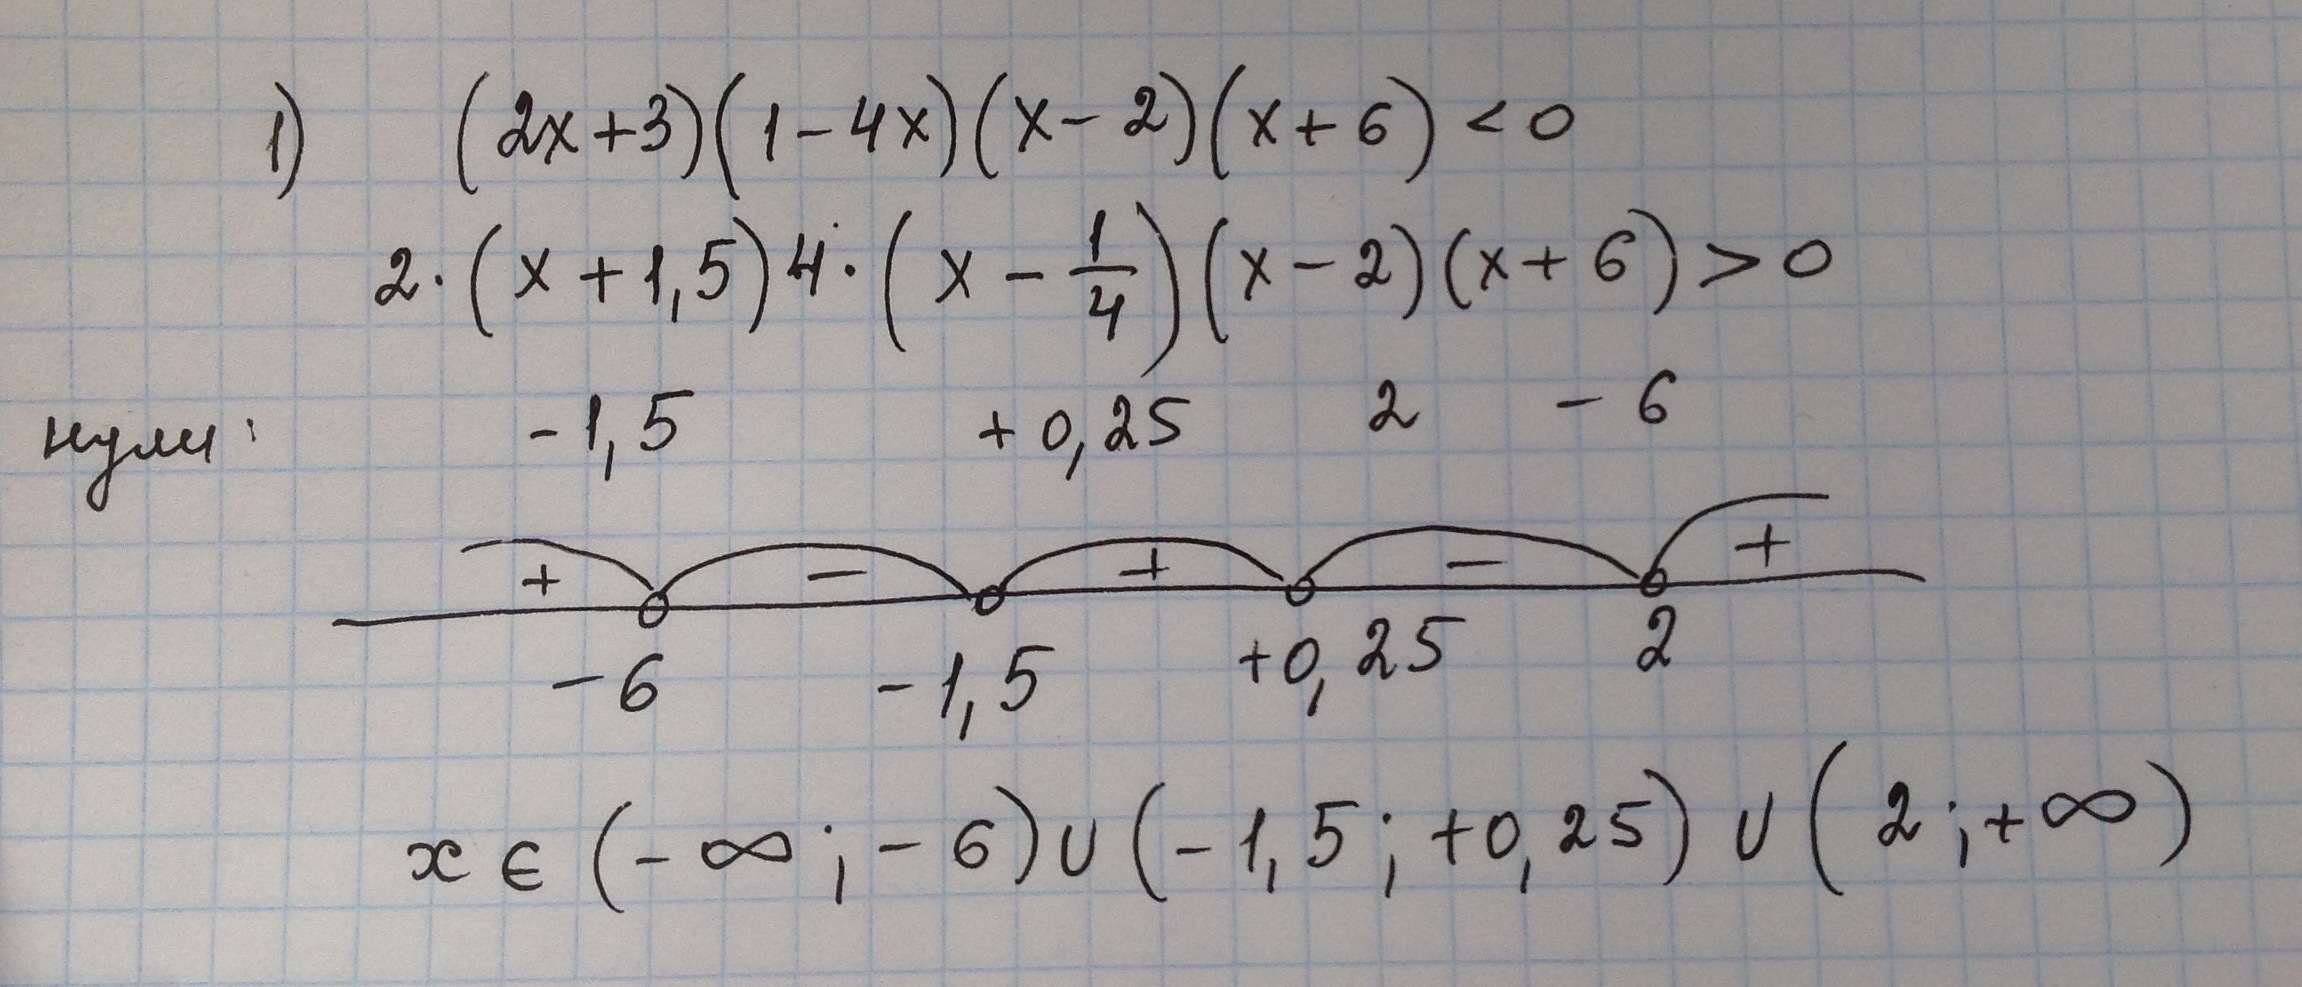 1) (2x+3)(1-4x)(x-2)(x+6)<0
2·(x+1,5)4·(x-1/4)(x-2)(x+6)>0
нули: -1,5 +0,25 2 -6
+ − + − +
-6 -1,5 +0,25 2
x ∈ (-∞;-6)∪(-1,5;+0,25)∪(2;+∞)